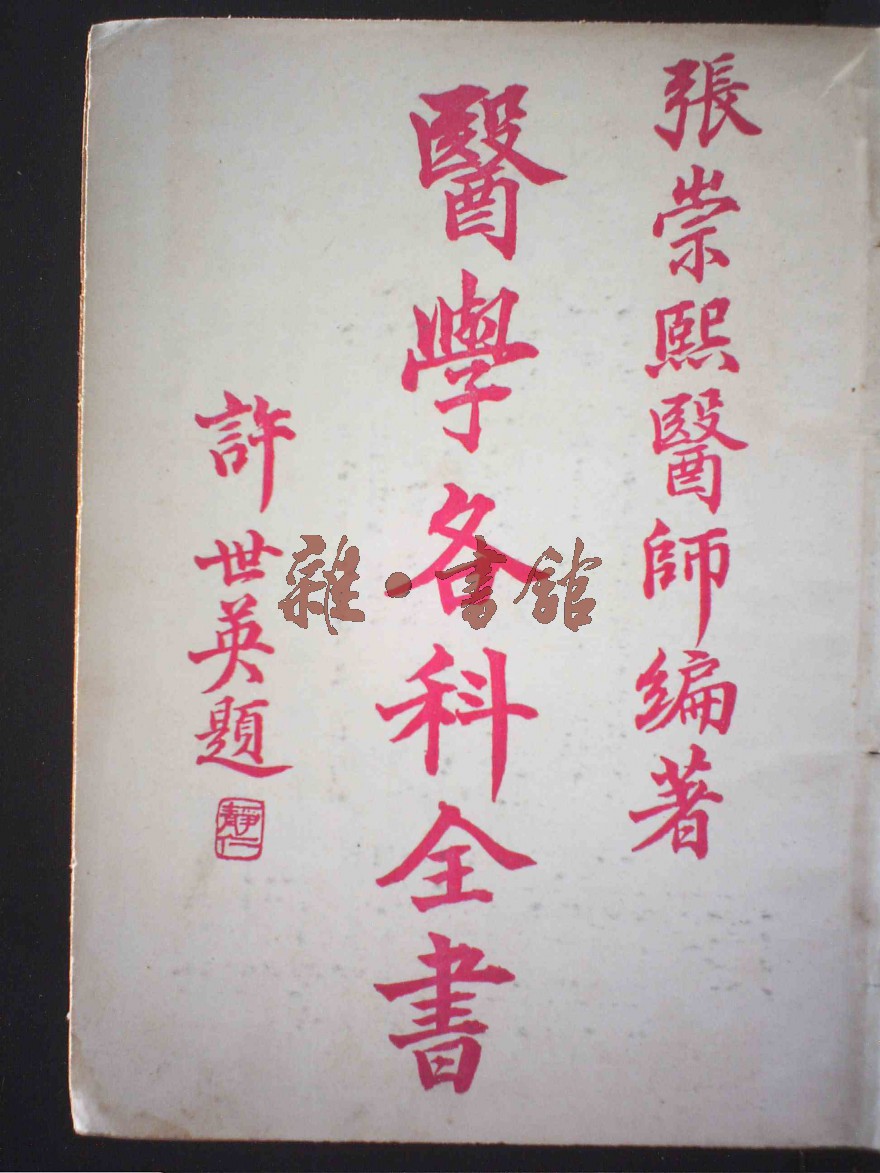 張崇熙醫師編著
醫學各科全書
許世英題
靜仁
雜·書館